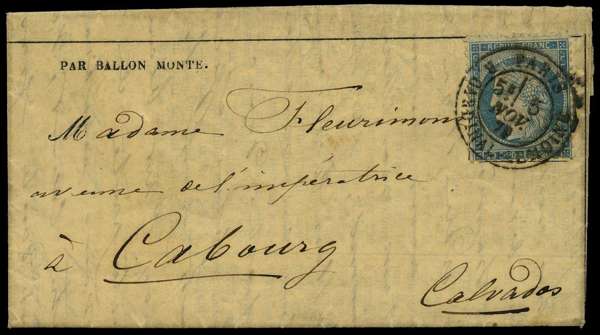 REPUB. FRANC.
PARIS
5E / 5
NOV.
70
PAR BALLON MONTÉ.
Madame Fleurimon
avenue de l'impératrice
à Cabourg
Calvados